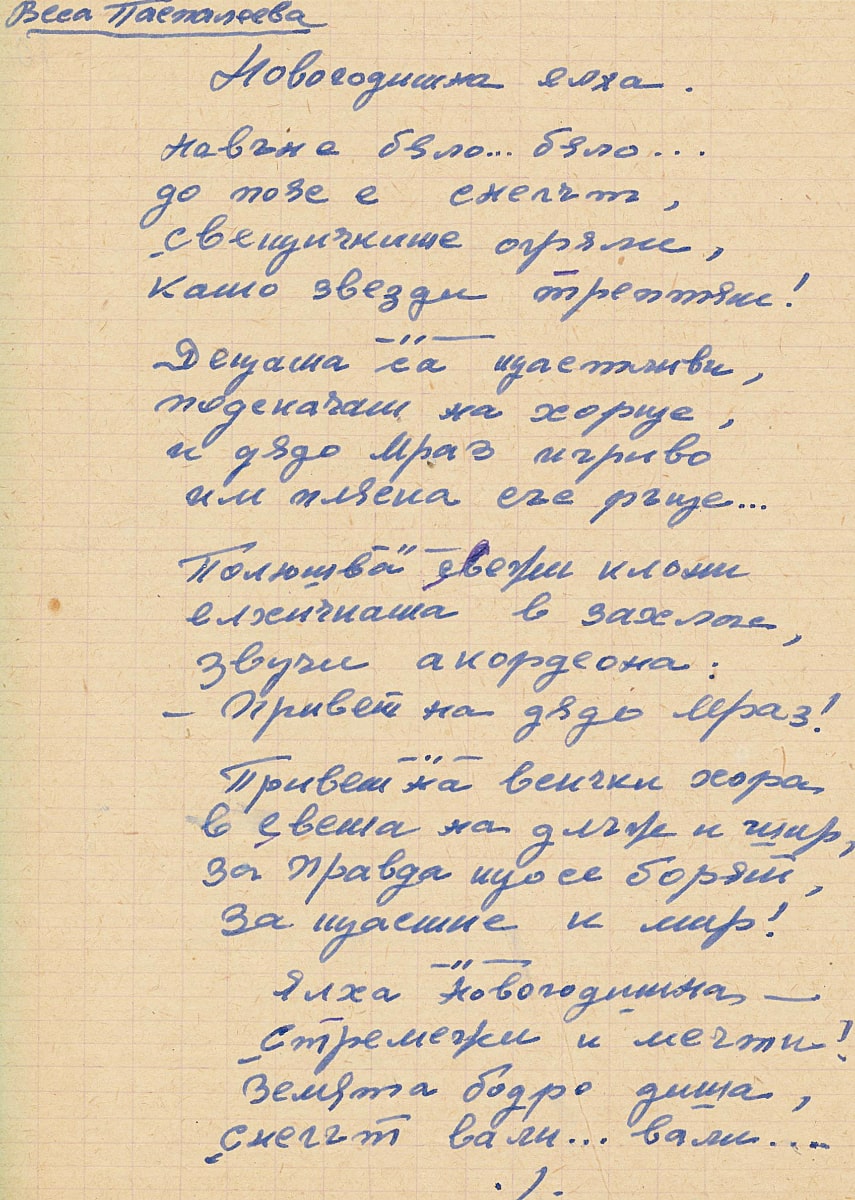 Веса Паспалеева
Новогодишна ялха.
Навъне бяло... бяло...
до пояс е снегът,
свещичките огряли,
като звезди трептят!
Децата са щастливи,
подскачат на хорце,
и дядо Мраз игриво
им пляска със ръце...
Полюшва свежи клони
елхичката в захлас,
звучи акордеона:
- Привет на дядо Мраз!
Привет на всички хора
в света на длъж и шир,
за правда що се борят,
за щастие и мир!
Ялха новогодишна —
Стремежи и мечти!
Земята бодро диша,
снегът вали... вали....